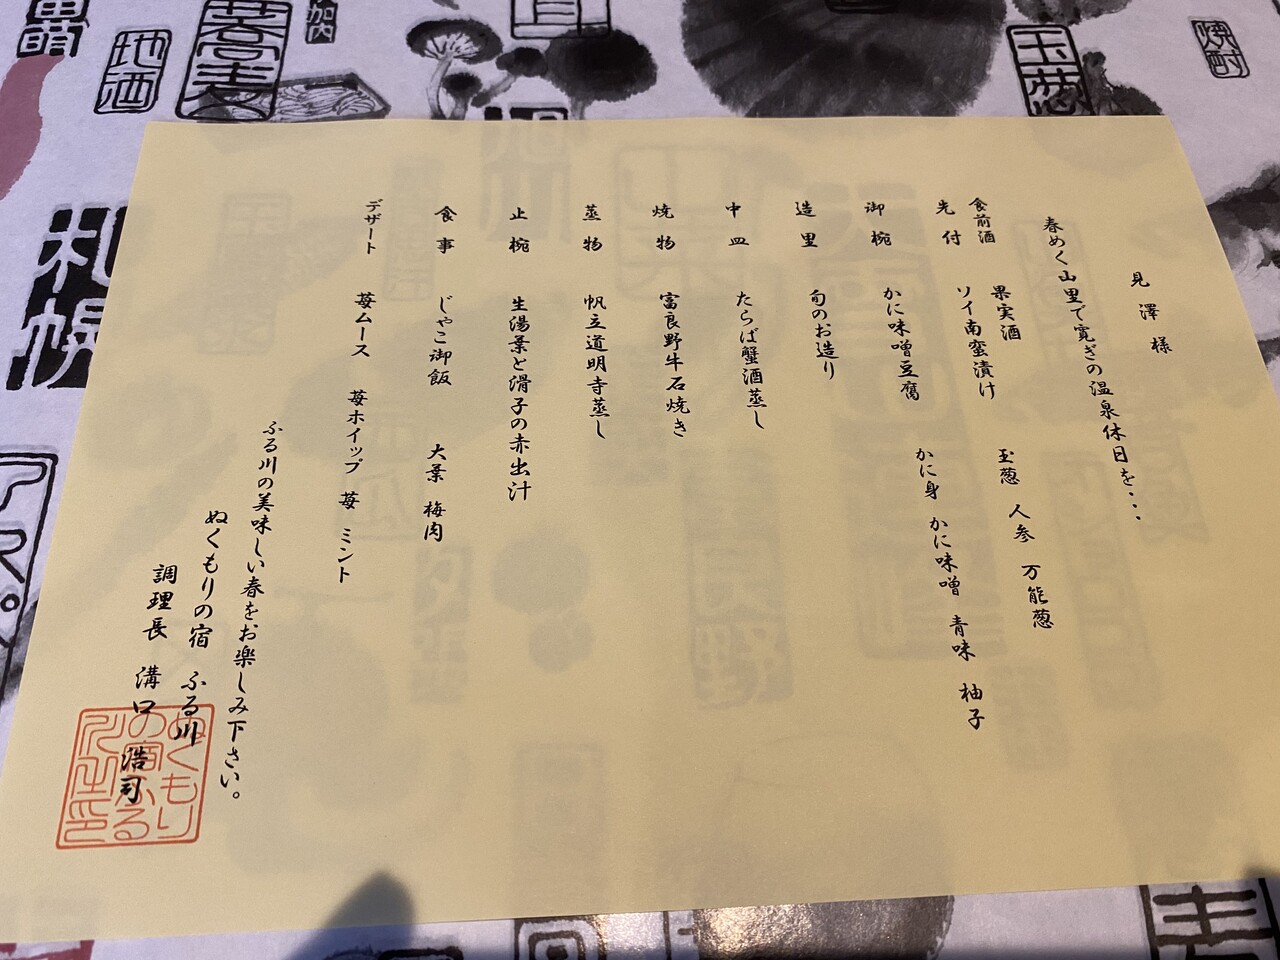 見澤様
春めく山里で寛ぎの温泉休日を・・・
食前酒 果実酒
先付 ソイ南蛮漬け 玉葱 人参 万能葱
御椀 かに味噌豆腐 かに身 かに味噌 青味 柚子
造里 旬のお造り
中皿 たらば蟹酒蒸し
焼物 富良野牛石焼き
蒸物 帆立道明寺蒸し
止椀 生湯葉と滑子の赤出汁
食事 じゃこ御飯 大葉 梅肉
デザート 苺ムース 苺ホイップ 苺 ミント
ふる川の美味しい春をお楽しみ下さい。
ぬくもりの宿 ふる川
調理長 溝口 浩司
ぬくもり
の宿ふる
川之印
地酒
蕎麦
加内
玉葱
焼酎
札幌
アスパ